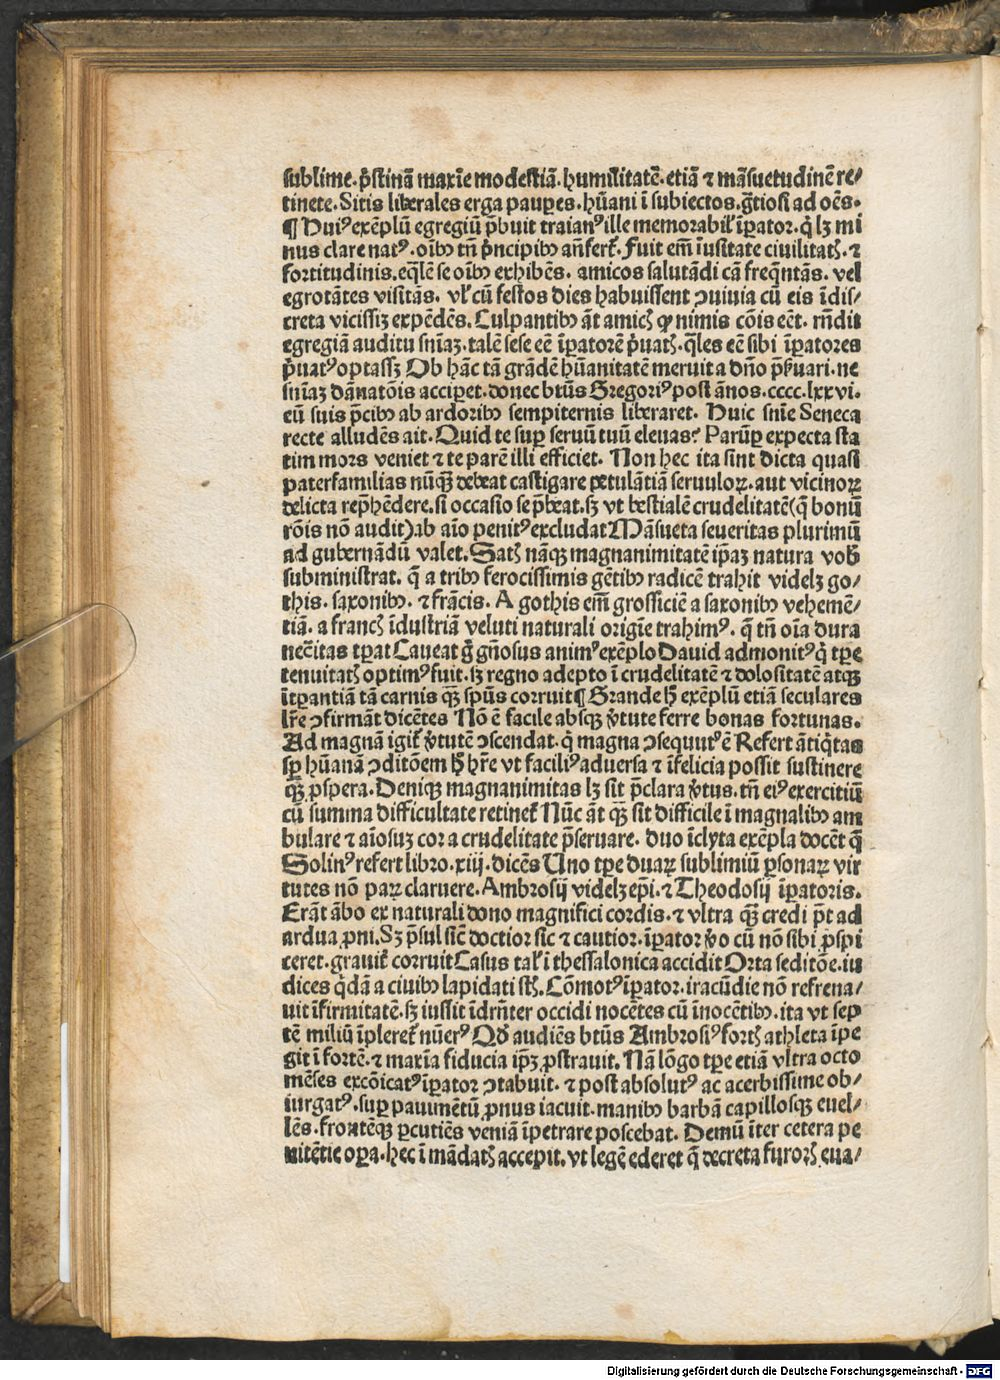 sublime.p̄stinā maxīe modestiā.humilitatē.etiā ⁊ māsuetudinē re⸗
tinete.Sitis liberales erga paupes.hūani ī subiectos.gr̄tiosi ad oēs.
¶ Huiꝰ exēplū egregiū p̄buit traianꝰ ille memorabil' īꝑator.qͥ lꝫ mi
nus clare natꝰ.oībꝰ tn̄ pͥncipibꝰ an̄fert᷑.Fuit em̄ īusitate ciuilitatꝭ.⁊
fortitudinis.eq̄lē se oībꝰ exhibēs.amicos salutādi cā freq̄ntās.vel
egrotātes visitās.vl' cū festos dies habuissent ꝯuiuia cū eis īdis⸗
creta vicissiꝫ expēdēs.Culpantibꝰ āt amicꝭ ꝙ nimis cōis eēt.rn̄dit
egregiā auditu sn̄iaꝫ.talē sese eē īꝑatorē pͥuatꝭ.q̄les eē sibi īꝑatores
pͥuatꝰ optassꝫ Ob hāc tā grādē hūanitatē meruit a dn̄o p̄ẜuari.ne
sn̄iaꝫ dānatōis acciꝑet.donec btūs Gregoriꝰ post ānos.cccc.lxxvi.
eū suis p̄cibꝰ ab ardoribꝰ sempiternis liberaret. Huic sn̄ie Seneca
recte alludēs ait.Quid te suꝑ seruū tuū eleuas? Parūꝑ expecta sta
tim mors veniet ⁊ te parē illi efficiet. Non hec ita sint dicta quasi
paterfamilias nūqͣꝫ debeat castigare petulātiā seruuloꝝ.aut vicinoꝝ
delicta rep̄hēdere.si occasio se p̄beat.sꝫ vt bestialē crudelitatē(q̄ bonū
rōis nō audit)ab aīo penitꝰ excludat Māsueta seueritas plurimū
ad gubernādū valet.Satꝭ nāqꝫ magnanimitatē ip̄aꝫ natura vob̄
subministrat. q̄ a tribꝰ ferocissimis gētibꝰ radicē trahit videlꝫ go⸗
this. saxonibꝰ. ⁊ frācis. A gothis em̄ grossiciē a saxonibꝰ vehemē⸗
tiā. a francꝭ īdustriā veluti naturali origīe trahimꝰ. q̄ tn̄ oīa dura
nec̄itas tꝑat Caueat gͦ gn̄osus animꝰ exēplo Dauid admonitꝰ qͥ tꝑe
tenuitatꝭ optimꝰ fuit.sꝫ regno adepto ī crudelitatē ⁊ dolositatē atqꝫ
ītꝑantiā tā carnis qͣꝫ sp̄us corruit ¶ Grande hͦ exēplū etiā seculares
lr̄e ꝯfirmāt dicētes Nō ē facile absqꝫ ꝟtute ferre bonas fortunas.
Ad magnā igit᷑ ꝟtutē ꝯscendat.qͥ magna ꝯsequutꝰ ē Refert ātiqͥtas
sꝑ hūanā ꝯditōem hͦ hr̄e vt faciliꝰ aduersa ⁊ īfelicia possit sustinere
qͣꝫ ꝓspera.Deniqꝫ magnanimitas lꝫ sit p̄clara ꝟtus.tn̄ eiꝰ exercitiū
cū summa difficultate retinet᷑ Nūc āt qͣꝫ sit difficile ī magnalibꝰ am
bulare ⁊ aīosuꝫ cor a crudelitate p̄seruare. duo īclyta exēpla docēt q̄
Solinꝰ refert libro.xiij.dicēs Uno tꝑe duaꝝ sublimiū ꝑsonaꝝ vir
tutes nō paꝝ claruere.Ambrosij videlꝫ ep̄i.⁊ Theodosij īꝑatoris.
Erāt ābo ex naturali dono magnifici cordis.⁊ vltra qͣꝫ credi p̄t ad
ardua ꝓni.Sꝫ p̄sul sic̄ doctior sic ⁊ cautior.īꝑator ꝟo cū nō sibi ꝓspi
ceret.grauit᷑ corruit Casus tal' ī thessalonica accidit Orta seditōe.iu
dices qͥdā a ciuibꝰ lapidati sꝭ. Cōmotꝰ īꝑator.iracūdie nō refrena⸗
uit īfirmitatē.sꝫ iussit īdrn̄ter occidi nocētes cū īnocētibꝰ.ita vt sep
tē miliū īpleret᷑ nūerꝰ Qd̛ audiēs btūs Ambrosiꝰ fortꝭ athleta īpe
git ī fortē.⁊ maxīa fiducia ip̄ꝫ ꝓstrauit. Nā lōgo tꝑe etiā vltra octo
mēses excōicatꝰ īꝑator ꝯtabuit. ⁊ post absolutꝰ ac acerbissime ob⸗
iurgatꝰ.suꝑ pauimētū ꝓnus iacuit.manibꝰ barbā capillosqꝫ euel⸗
lēs.frontēqꝫ ꝑcutiēs veniā īpetrare poscebat. Demū īter cetera pe
nitētie oꝑa.hec ī mādatꝭ accepit.vt legē ederet q̄ decreta furorꝭ eua⸗
Digitalisierung gefördert durch die Deutsche Forschungsgemeinschaft - DFG